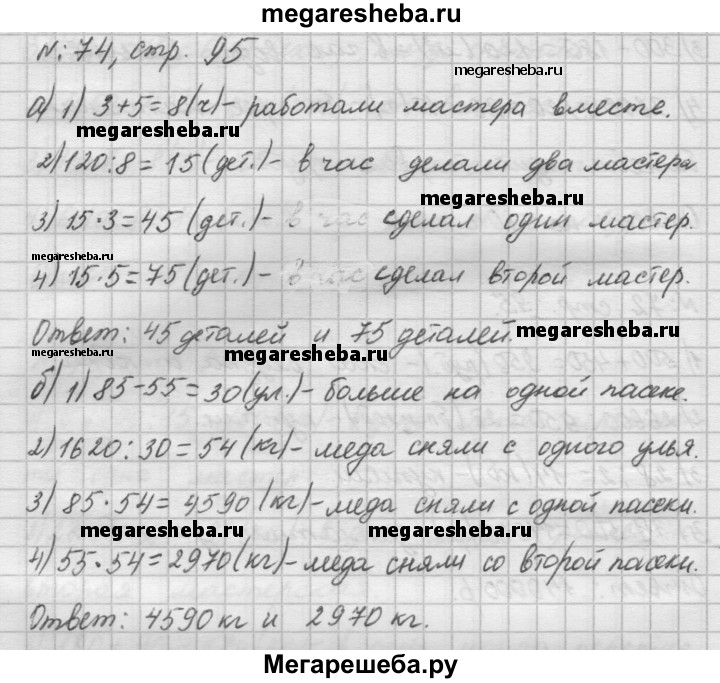 megaresheba.ru
№: 74, стр. 95
megaresheba.ru
а) 1) 3+5=8(ч)- работали мастера вместе.
megaresheba.ru
2) 120:8=15(дет.)- в час делали два мастера
megaresheba.ru
3) 15·3=45(дет.)- в час сделал один мастер.
megaresheba.ru
4) 15·5=75(дет.)- в час сделал второй мастер.
Ответ: 45 деталей и 75 деталей.
megaresheba.ru
megaresheba.ru
б) 1) 85-55=30(ул.)- больше на одной пасеке.
2) 1620:30=54(кг)- меда сняли с одного улья.
3) 85·54=4590(кг)- меда сняли с одной пасеки.
megaresheba.ru megaresheba.ru
4) 55·54=2970(кг)- меда сняли со второй пасеки.
Ответ: 4590 кг и 2970 кг.
Мегарешеба.ру